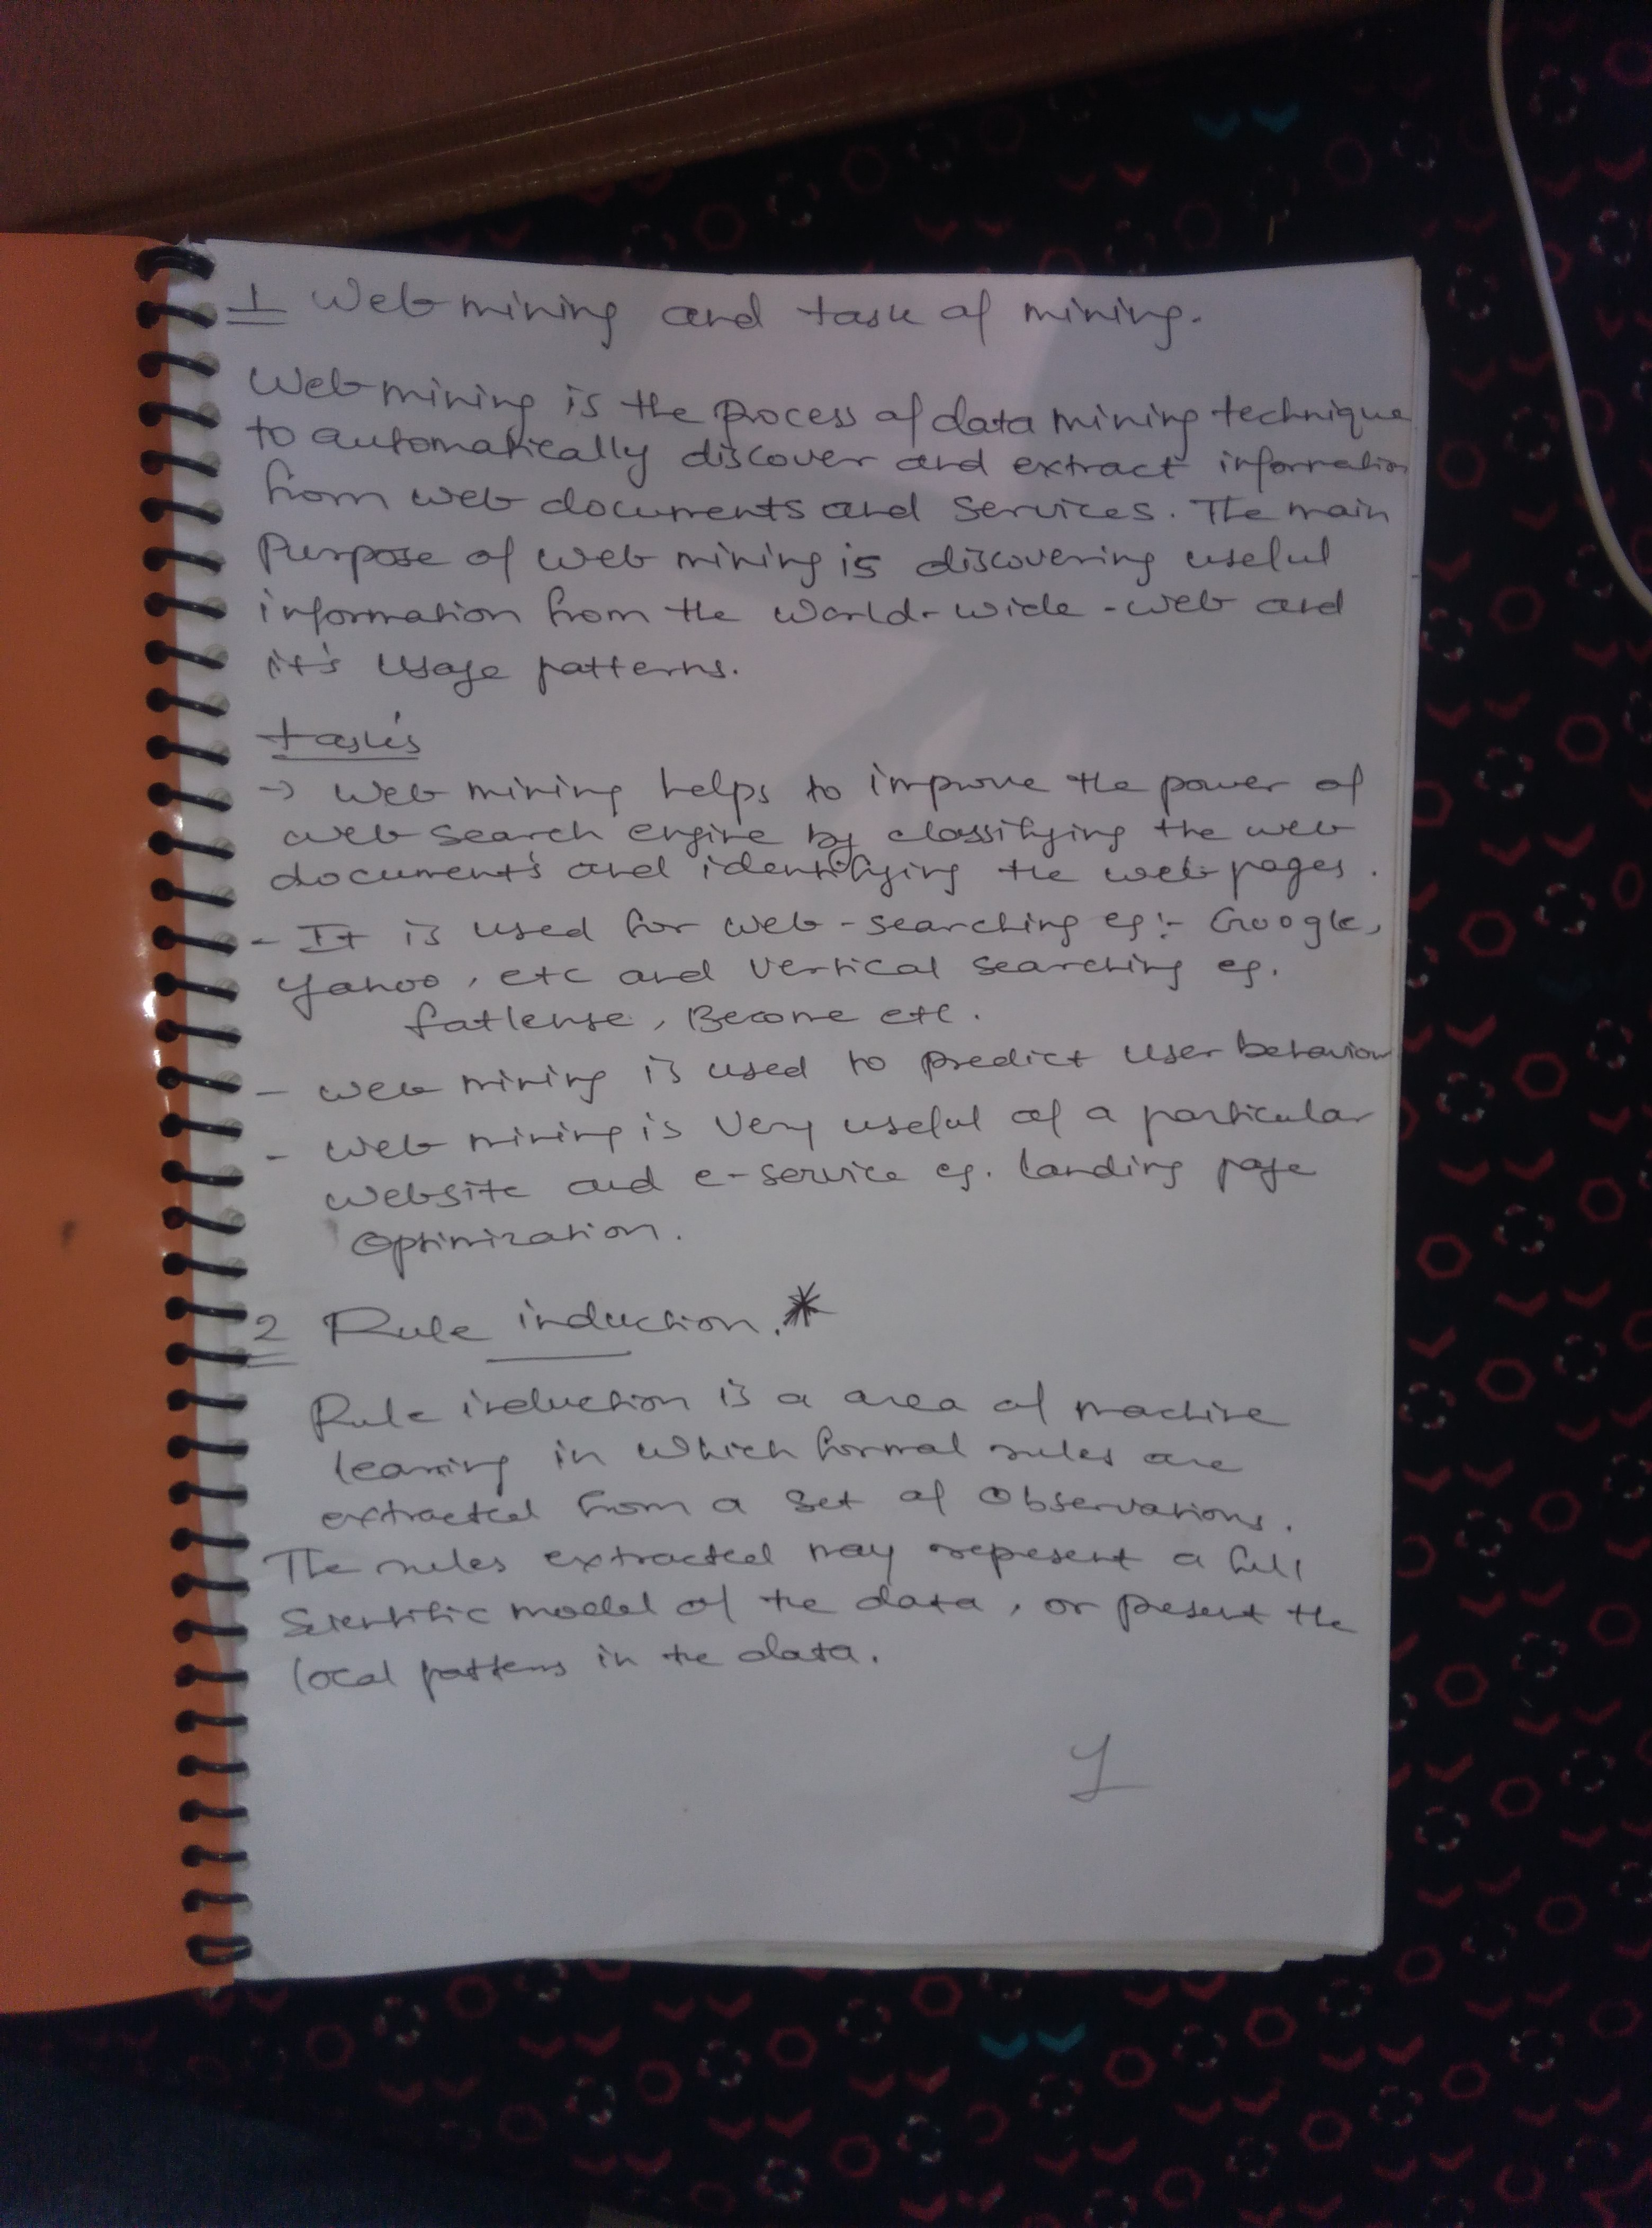 1 Web mining and task of mining.
Web mining is the process of data mining technique
to automatically discover and extract information
from web documents and services. The main
Purpose of web mining is discovering useful
information from the world-wide-web and
it's usage patterns.
task's
→ Web mining helps to improve the power of
web search engine by classifying the web
document's and identifying the web pages.
- It is used for web-searching eg:- Google,
Yahoo, etc and vertical searching eg.
fatlense, Become etc.
- web mining is used to predict user behaviour
- web mining is very useful of a particular
website and e-service eg. landing page
optimization.
2 Rule induction.*
Rule induction is a area of machine
learning in which formal rules are
extracted from a set of observations.
The rules extracted may repesent a full
Scientific model of the data, or pesent the
local patterns in the data.
1